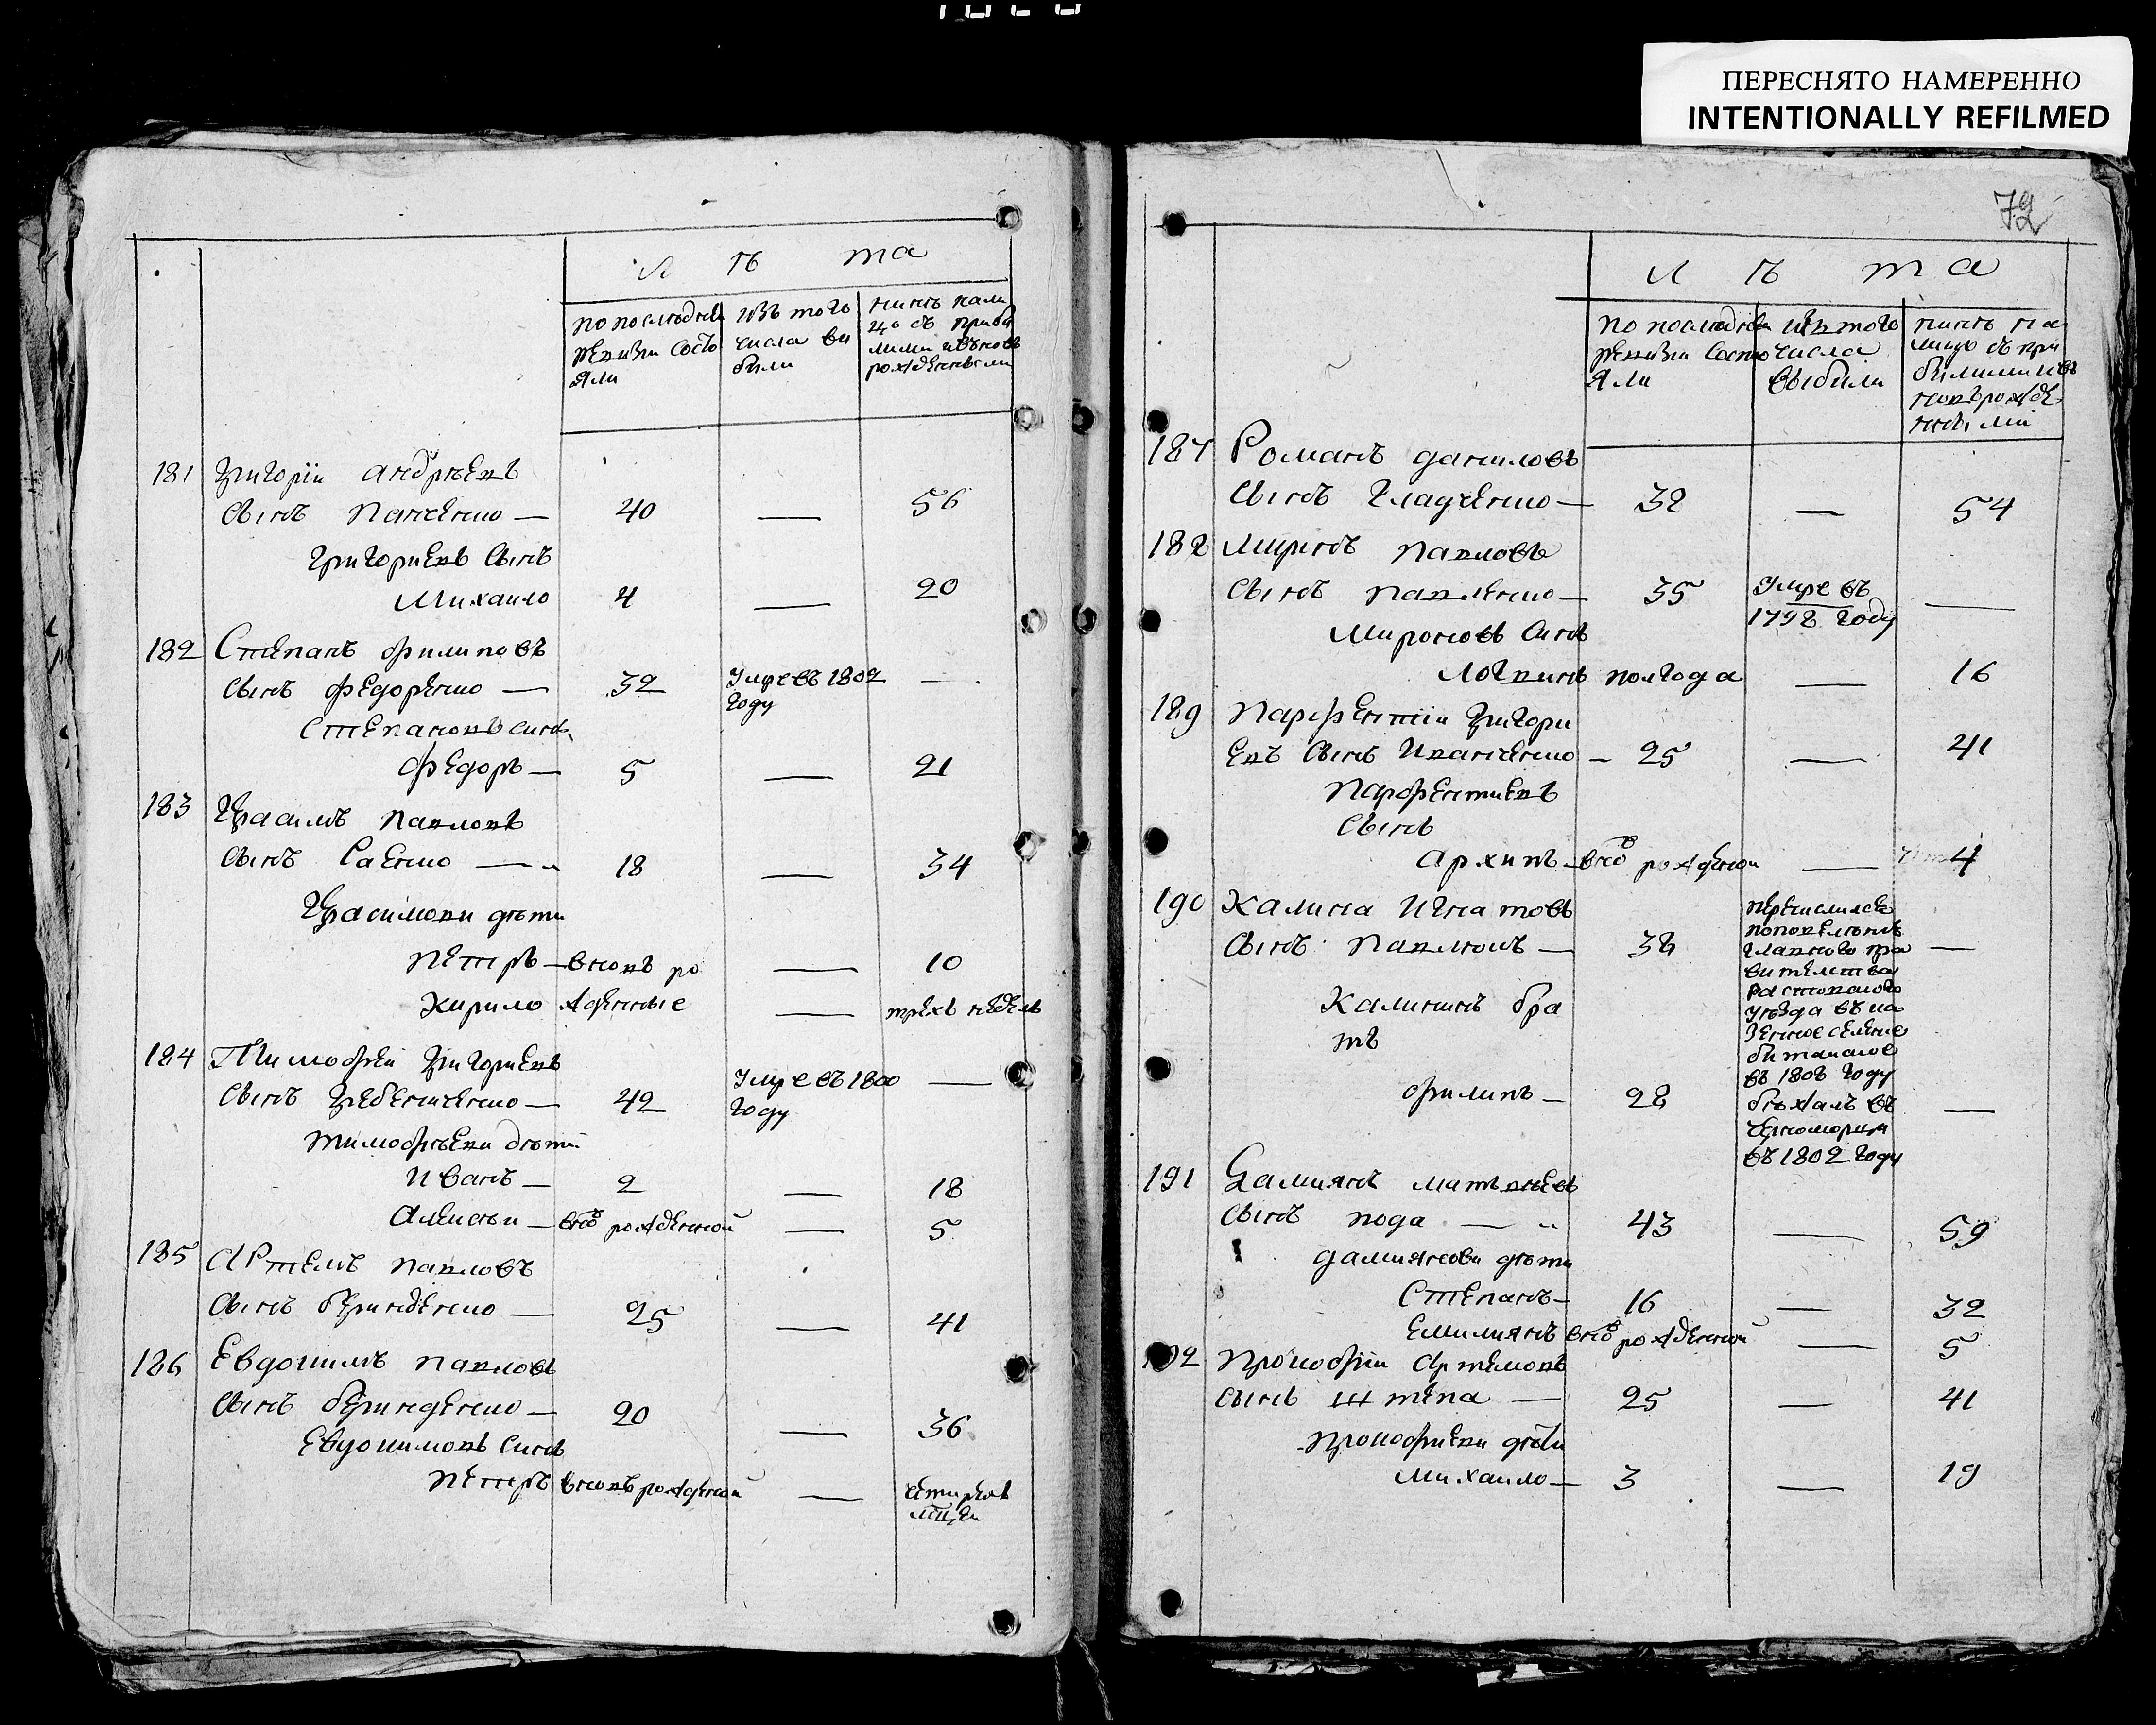 ПЕРЕСНЯТО НАМЕРЕННО
INTENTIONALLY REFILMED
Л ѣ та
по последней ревизии состо яли
изъ того числа вы были
ныне нали цо съ прибы лими и вновь рожденными
181 Григорiи андрѣевъ
сынъ Панченко — 40 — 56
Григориевъ сынъ
Михаило 4 — 20
182 Степанъ филиповъ
сынъ федоренко — 32 Умре въ 1802 году —
Степановъ синъ
федоръ — 5 — 21
183 Герасимъ павловъ
сынъ Саенко — 18 — 34
Герасимови дѣти
петръ — вновь ро — 10
Кирило жденные — трехъ недель
184 Тимофей Григориевъ
сынъ Гребенниченко — 42 Умре въ 1800 году —
тимофѣеви дѣти
иванъ — 2 — 18
алексѣи — вно рожденной — 5
185 Артемъ павловъ
сынъ беринденко — 25 — 41
186 Евдокимъ павловъ
сынъ беринденко — 20 — 36
Евдокимовъ синъ
петръ вновь рожденой — четирех мцей
72
Л ѣ та
по последней ревизии состо яли
изъ того числа выбыли
ныне на лицо съ при былими и въ новъ рожде нными
187 Романъ даниловъ
сынъ Гладченко — 38 — 54
188 миронъ павловъ
сынъ павленко — 35 Умре въ 1798 году —
мироновъ синъ
логвинъ полгода — 16
189 парфентiи Григори
евъ сынъ иванченко — 25 — 41
парфентиевъ
сынъ
архипъ — вно рожденой — 4
190 Калина игнатовъ
сынъ павлюкъ — 38 перечислился по повелению главного пра вителства ростовского уезда въ ка зенное селение батаиское въ 1808 году —
Калининъ бра
тъ
филипъ — 28 бѣжалъ въ черноморию въ 1802 году —
191 Дамиянъ матвѣевъ
сынъ кода — 43 — 59
дамиянови дѣти
Степанъ — 16 — 32
Емилиянъ вно рожденной — 5
192 прокофiи артемовъ
сынъ штепа — 25 — 41
прокофиеви дѣти
михаило — 3 — 19